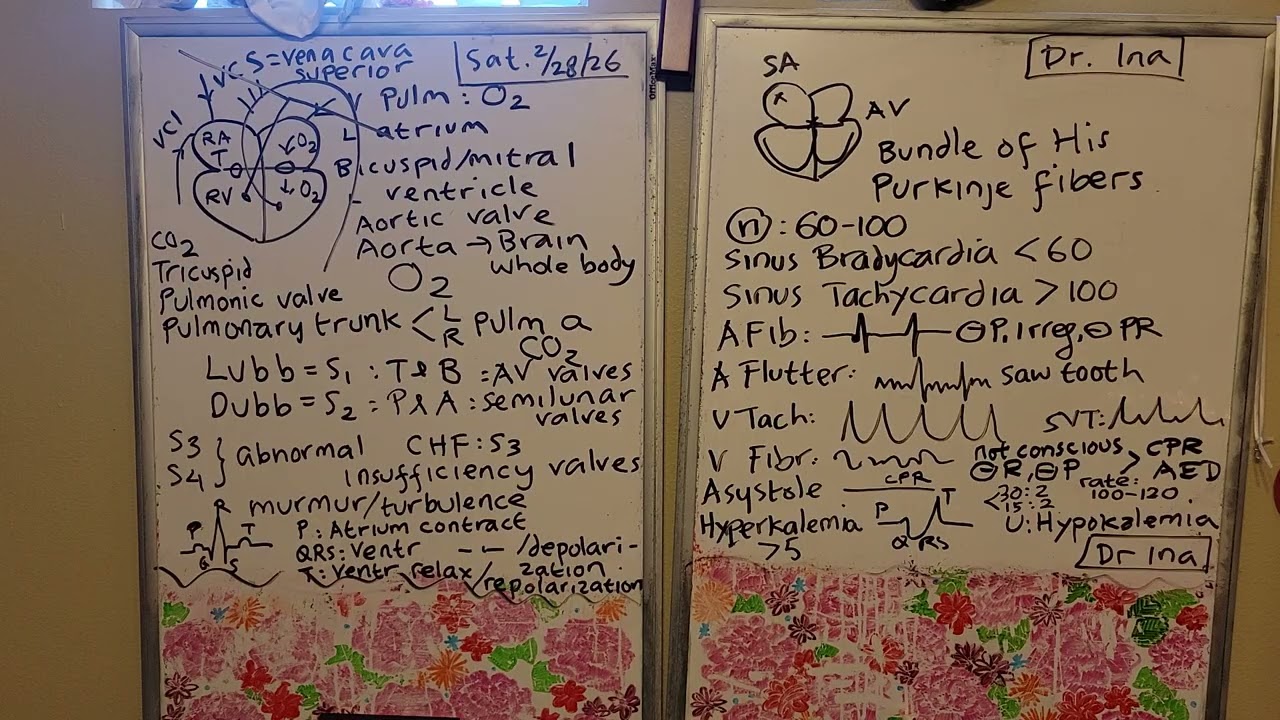 VCS = vena cava
superior
Sat. 2/28/26
VCI
V Pulm : O2
L atrium
RA
T
↓O2
RV
↓O2
Bicuspid/mitral
L ventricle
Aortic valve
Aorta → Brain
whole body
O2
CO2
Tricuspid
Pulmonic valve
Pulmonary trunk < L
R Pulm a
CO2
Lubb = S1 : T & B = AV valves
Dubb = S2 = P & A : semilunar
valves
S3
S4 } abnormal CHF : S3
Insufficiency valves
murmur/turbulence
P R T
Q S
P : Atrium contract
QRS : Ventr -- -- /depolari-
zation
T : Ventr relax/repolarization
Dr. Ina
SA
x
AV
Bundle of His
Purkinje fibers
(n) : 60-100
Sinus Bradycardia < 60
Sinus Tachycardia > 100
A Fib : ⊖P, irreg, ⊖ PR
A Flutter : saw tooth
V Tach : SVT :
V Fibr : not conscious > CPR
⊖R, ⊖P AED
rate :
100-120.
Asystole CPR < 30:2
15:2
Hyperkalemia P Q RS T U : Hypokalemia
>5
Dr Ina